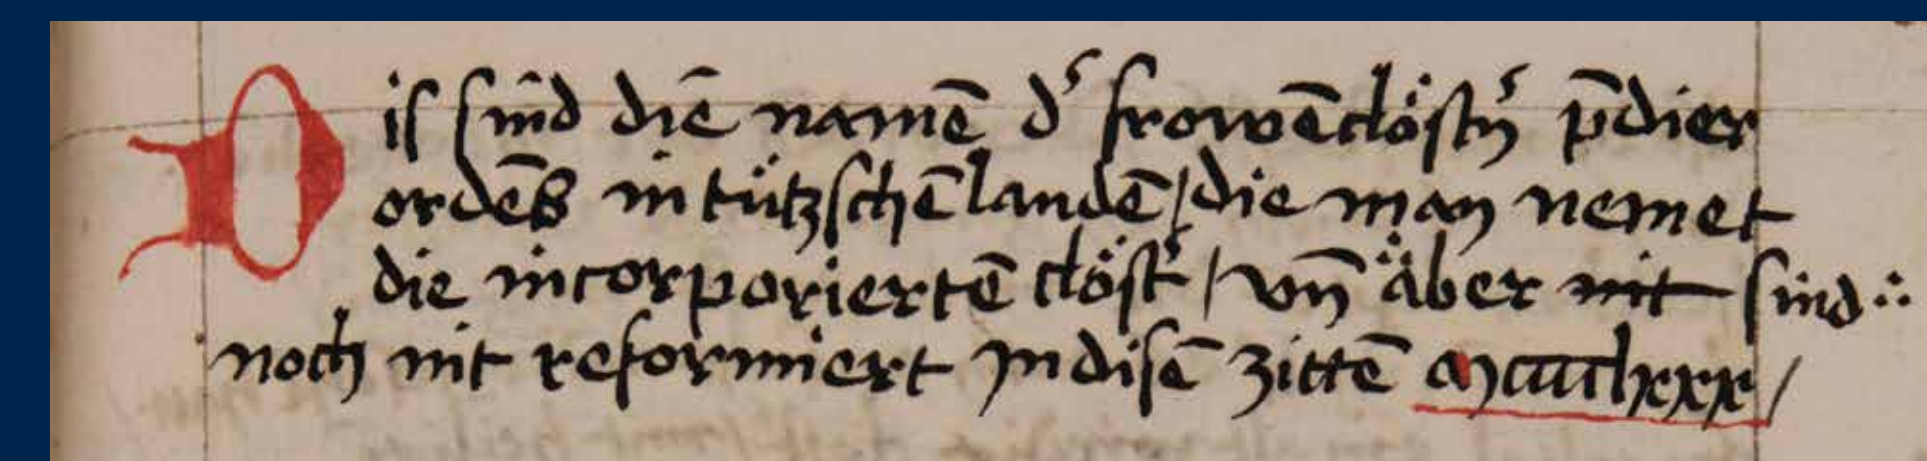 Dis sind diē namē dʾ frowēclöstʾ p̄dier
ordēs in tützschē landē / die man nemet
die incorporiertē clöstʾ / vn̄ äber nit sind
noch nit reformiert In disē zittē Mcccclxxx /